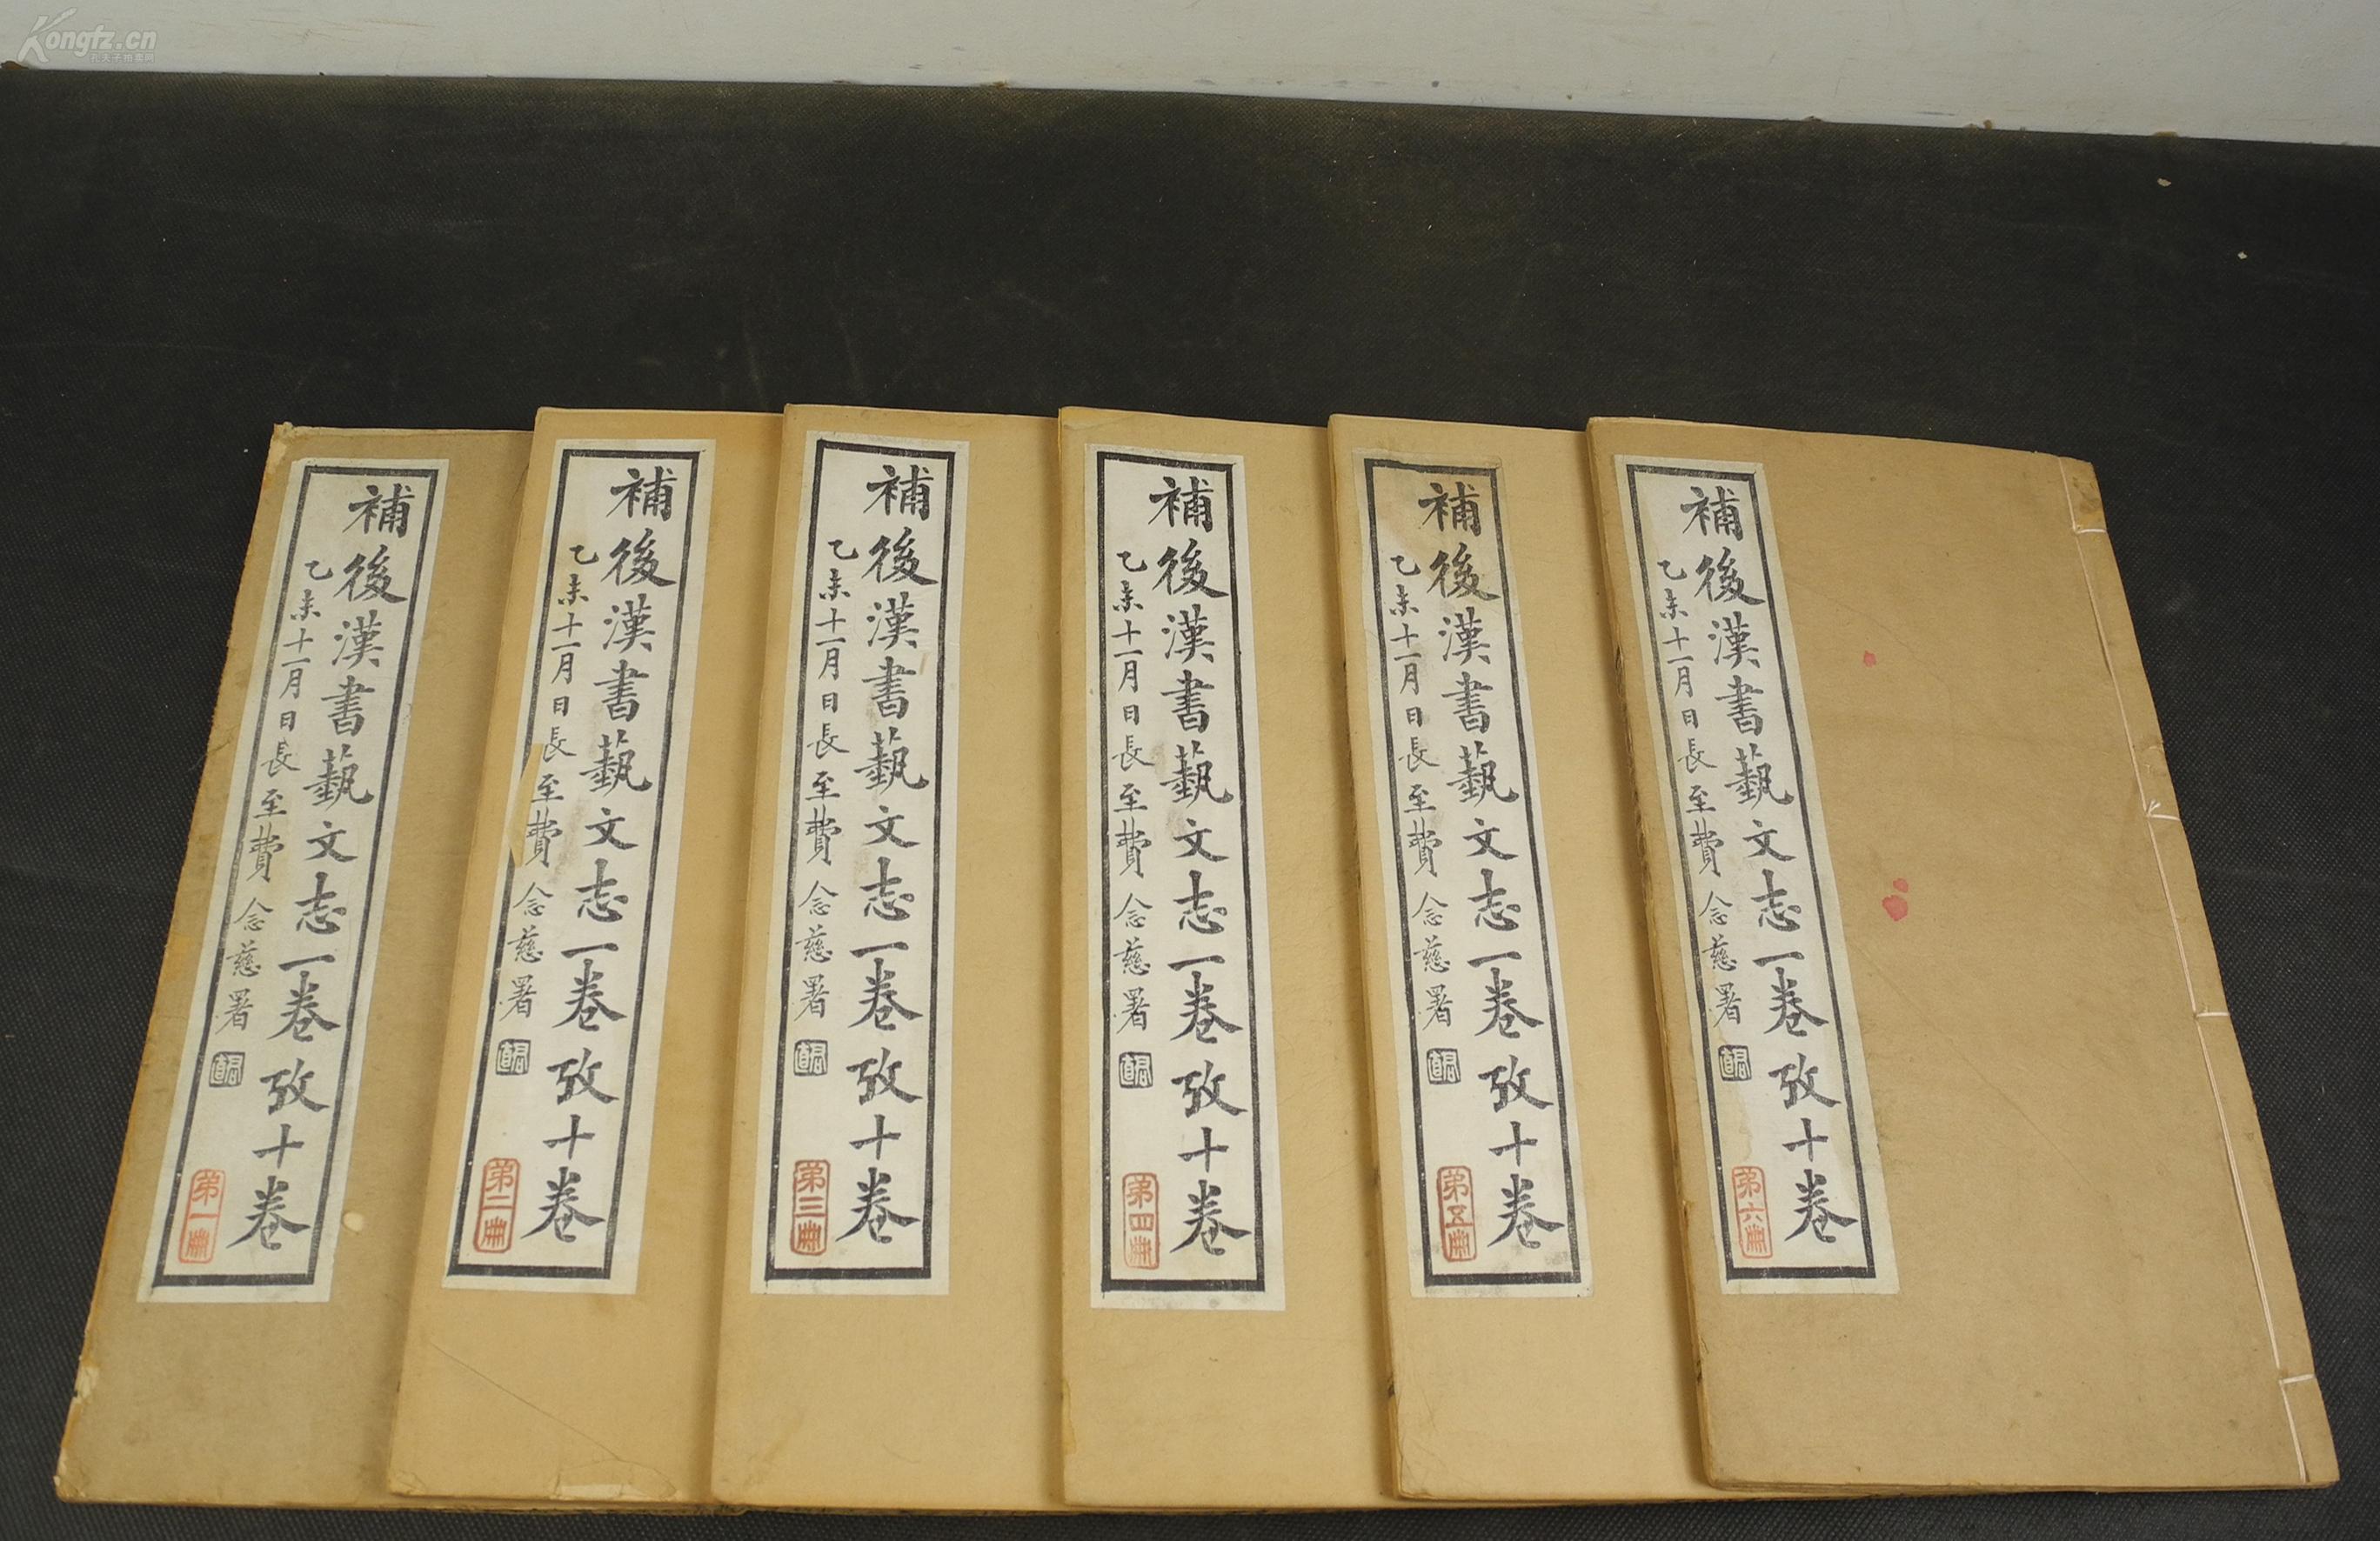 Kongfz.cn
孔夫子拍卖网
補後漢書蓺文志一卷攷十卷
乙未十一月日長至費念慈署
第一冊
補後漢書蓺文志一卷攷十卷
乙未十一月日長至費念慈署
第二冊
補後漢書蓺文志一卷攷十卷
乙未十一月日長至費念慈署
第三冊
補後漢書蓺文志一卷攷十卷
乙未十一月日長至費念慈署
第四冊
補後漢書蓺文志一卷攷十卷
乙未十一月日長至費念慈署
第五冊
補後漢書蓺文志一卷攷十卷
乙未十一月日長至費念慈署
第六冊